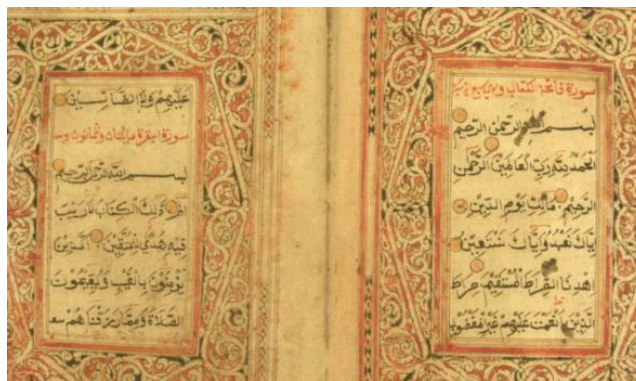 سورة فاتحة الكتاب و
بسم الله الرحمن الرحيم
الحمد لله رب العالمين الرحمن
الرحيم مالك يوم الدين
إياك نعبد وإياك نستعين
اهدنا الصراط المستقيم صراط
الذين أنعمت عليهم غير المغضوب
عليهم ولا الضالين
سورة البقرة مائتان وثمانون وست
بسم الله الرحمن الرحيم
الم ذلك الكتاب لا ريب
فيه هدى للمتقين الذين
يؤمنون بالغيب ويقيمون
الصلاة ومما رزقناهم